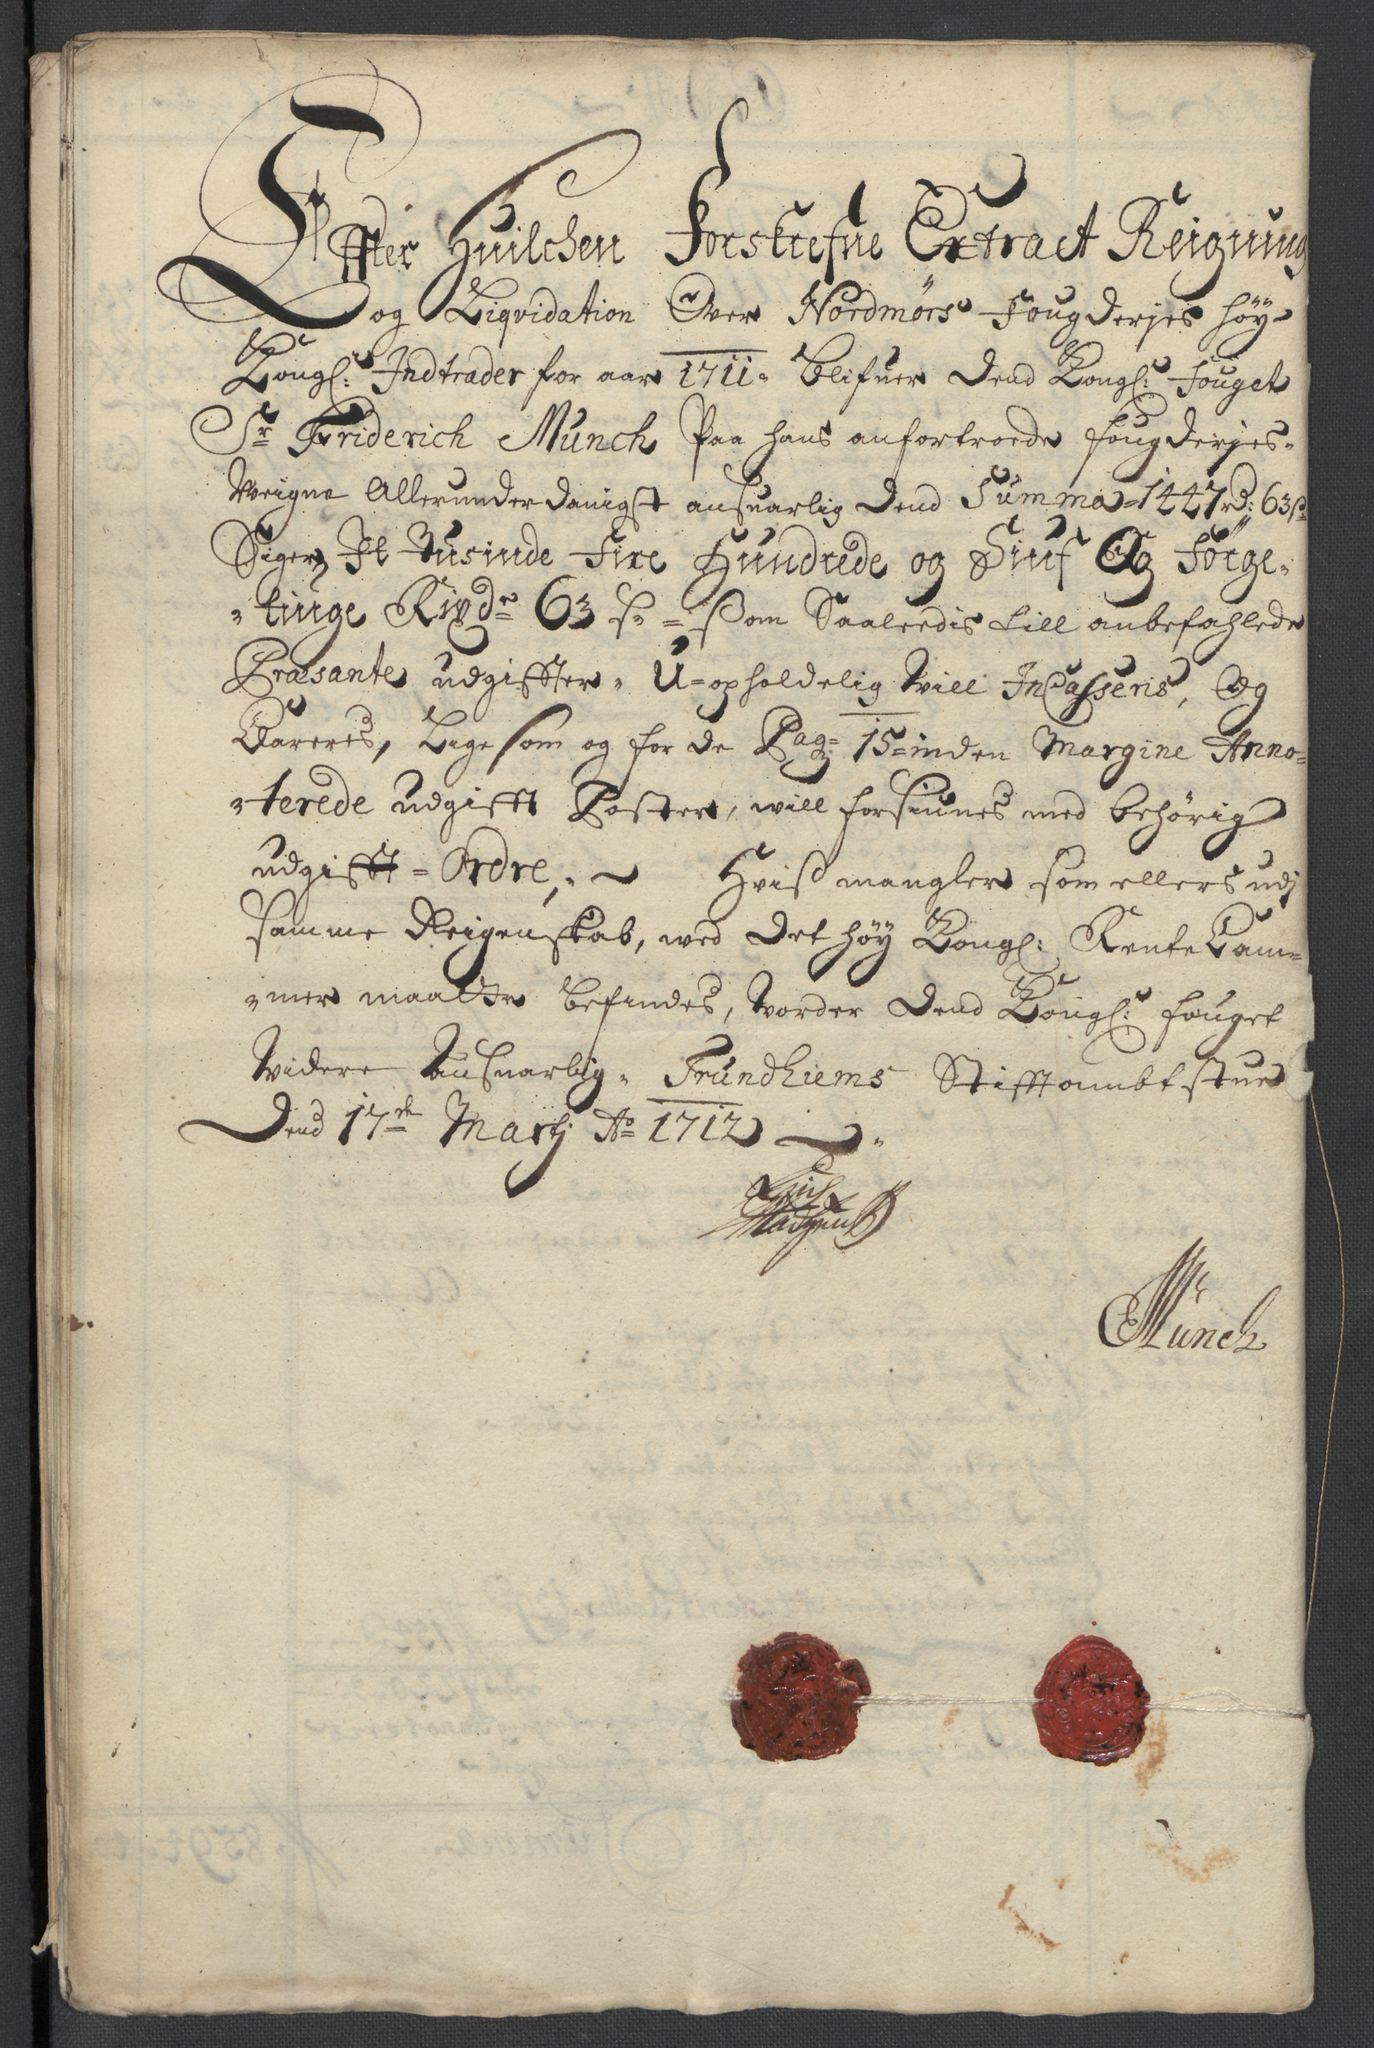 Effter Huilchen Forskrefne Extract Reigning
og Liqvidation Over Nordmørs Fougderjes høy-
Kongl: Indtrader for aar 1711. blifuer dend Kongl: fouget
Sr Friderich Münch Paa hans anfortroede fougderjes-
Weigne Allerunderdanigst ansuarlig dend Summa = 1447 Rd: 63 s
Siger Et Tusinde Fire Hundrede og Siuf Og Førge-
-tiuge Rixdr 63 s = som Saaleedis till anbefahlede
Præsante udgiffter. U-opholdelig will InCasseris, Og
Clareres, Lige som og for de Pag: 15 = inden Margine Anno-
-terede udgifft Poster, will forsiunes med behørig
udgifft = Ordre, Hviss mangler som ellers udj
samme Reigenskab, wed det høy Kongl: Rente Cam-
-mer maatte befindes, worder dend Kongl: fouget
widere ansuarlig. Trundhiems Stifftambtstue
Dend 17de Martj Ao 1712
Münch